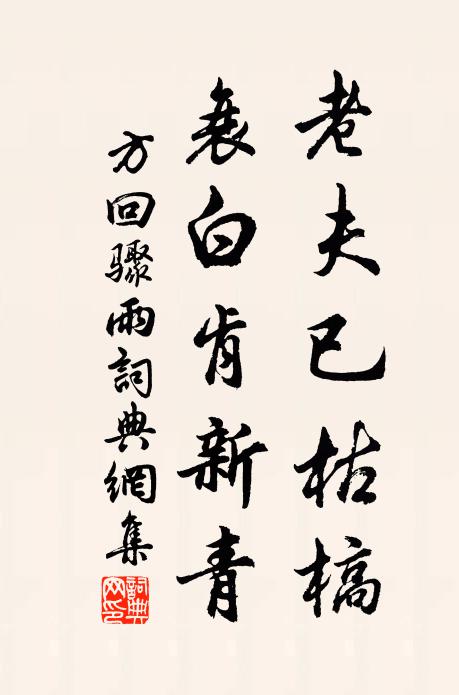 老夫已枯槁
衰白肯新青
方回驟雨詞典網集
詞典网印